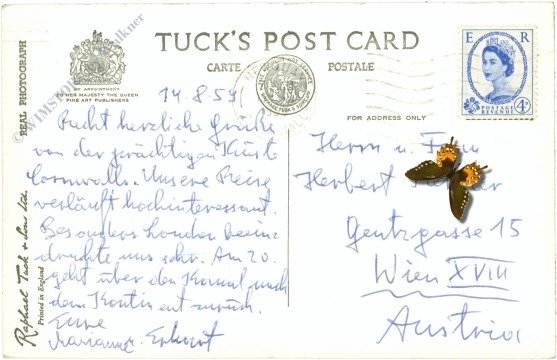 REAL PHOTOGRAPH
BY APPOINTMENT
TO HER MAJESTY THE QUEEN
FINE ART PUBLISHERS
TUCK'S POST CARD
CARTE POSTALE
FOR ADDRESS ONLY
E R
POSTAGE
REVENUE
4D
14.8.59
Recht herzliche Grüße
von der prächtigen Küste
Cornwalls. Unsere Reise
verläuft hochinteressant.
Besonders London beein-
druckte uns sehr. Am 20.
geht über den Kanal nach
dem Kontinent zurück.
Eure
Marianne Erhart
Herrn u. Frau
Herbert
Gentzgasse 15
Wien XVIII
Austria
Raphael Tuck & Sons Ltd.
Printed in England